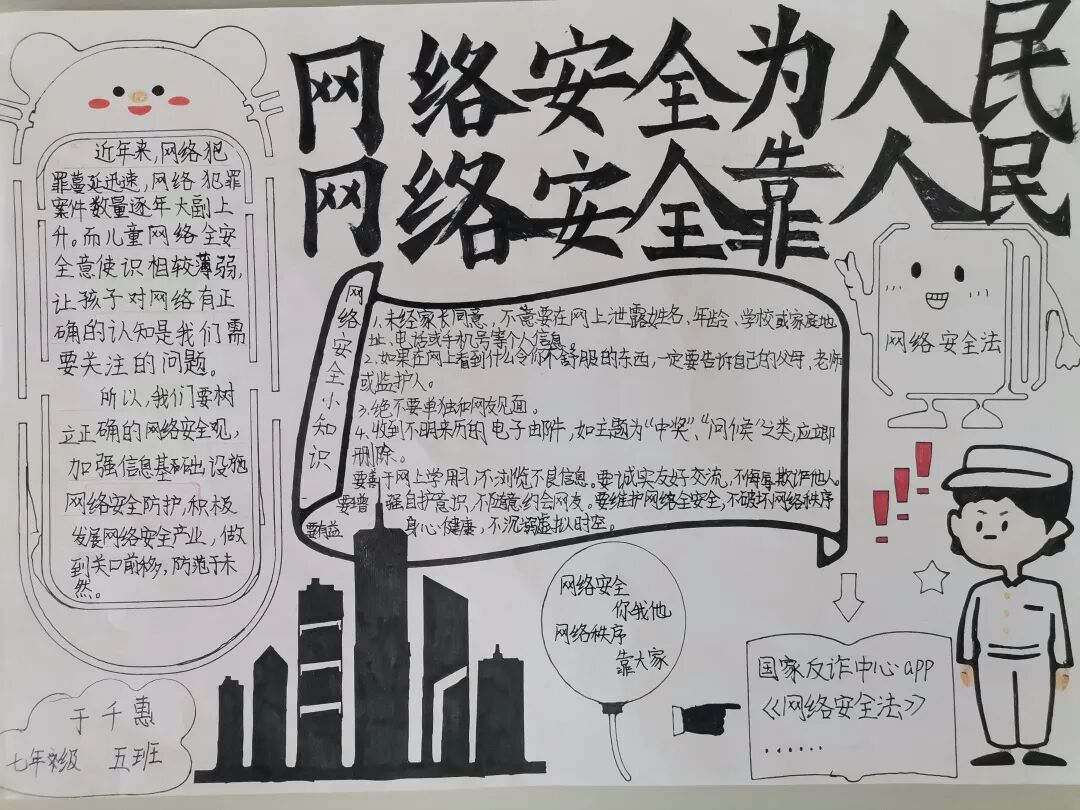 网络安全为人民
网络安全靠人民
近年来,网络犯
罪蔓延迅速,网络犯罪
案件数量逐年大副上
升。而儿童网络全安
全意使识相较薄弱,
让孩子对网络有正
确的认知是我们需
要关注的问题。
所以,我们要树
立正确的网络安全观,
加强信息基础设施
网络安全防护,积极
发展网络安全产业,做
到关口前移,防范于未
然。
网络安全小知识
1、未经家长同意,不意要在网上泄露姓名、年龄、学校或家庭地
址、电话或手机号等个人信息。
2.如果在网上看到什么令你不舒服的东西,一定要告诉自己的父母、老师
或监护人。
3.绝不要单独和网友见面。
4、收到不明来历的电子由邮件,如主题为“中奖”、“问候”之类,应立即
删除。
要善于网上学用习,不浏览不良信息。要诚实友好交流,不侮辱欺诈他人
要增强自护意识,不随意约会网友。要维护网络全安全,不破坏网络秩序
要有益身心健康,不沉溺虚拟时空。
网络安全法
网络安全
你我他
网络秩序
靠大家
国家反诈中心app
《网络安全法》
......
于千惠
七年级 五班